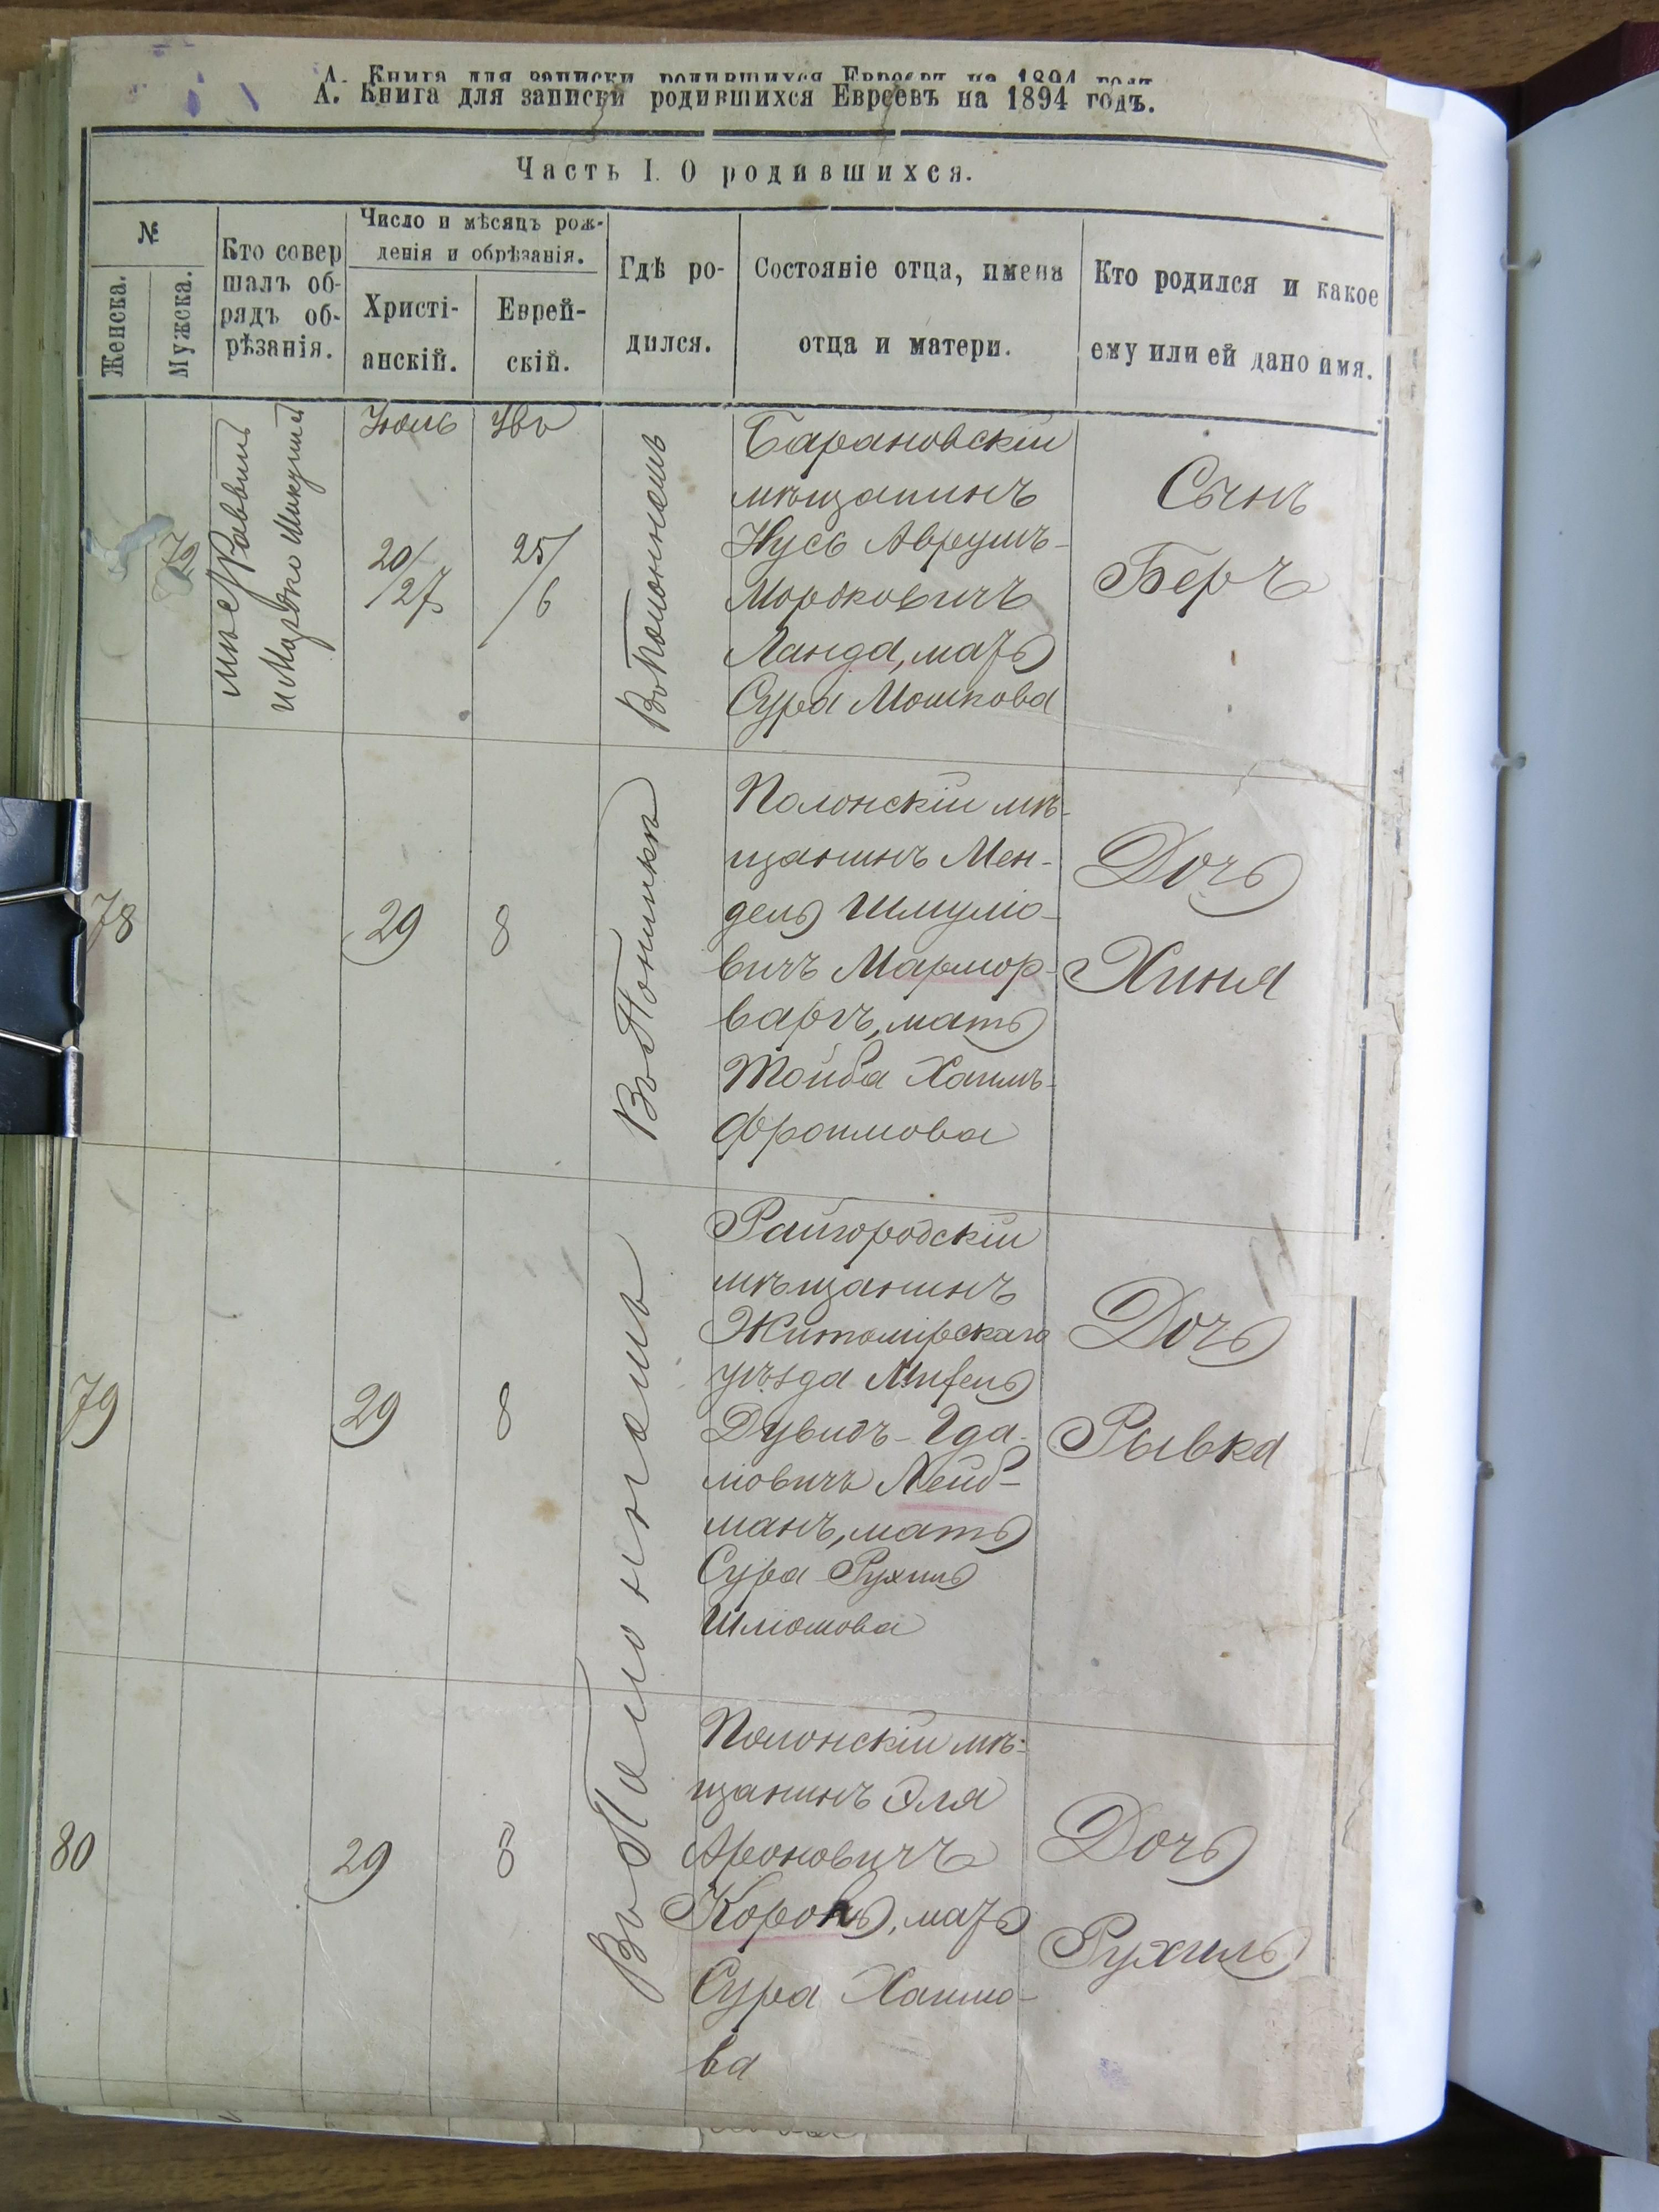 А. Книга для записки родившихся Евреевъ на 1894 годъ.
А. Книга для записки родившихся Евреевъ на 1894 годъ.
Часть I. О родившихся.
№
Женска.
Мужска.
Кто совер
шалъ об-
рядъ об-
рѣзанія.
Число и мѣсяцъ рож-
денія и обрѣзанія.
Христі-
анскій.
Еврей-
скій.
Гдѣ ро-
дился.
Состояніе отца, имена
отца и матери.
Кто родился и какое
ему или ей дано имя.
79
Раввинъ
Июль
20/
/27
Явъ
25/
/6
Въ Полонномъ
Барановскій
мѣщанинъ
Нусь Аврумъ-
Мордковичъ
Ланда, мать
Сура Мошкова
Сынъ
Беръ
78
29
8
Полонскій мѣ-
щанинъ Мен-
дель Шмуліо-
вичъ Мармор-
варъ, мать
Тойба Хаимъ-
Фроимова
Дочь
Хиня
79
29
8
Въ Полонномъ
Райгородскій
мѣщанинъ
Житомірскаго
уѣзда
Дувидъ-Гда-
ліовичъ Лейб-
манъ, мать
Сура Рухиль
Шліомова
Дочь
Рывка
80
29
8
Полонскій мѣ-
щанинъ Эля
Ароновичъ
Коронь, мать
Сура Хаимо-
ва
Дочь
Рухиль